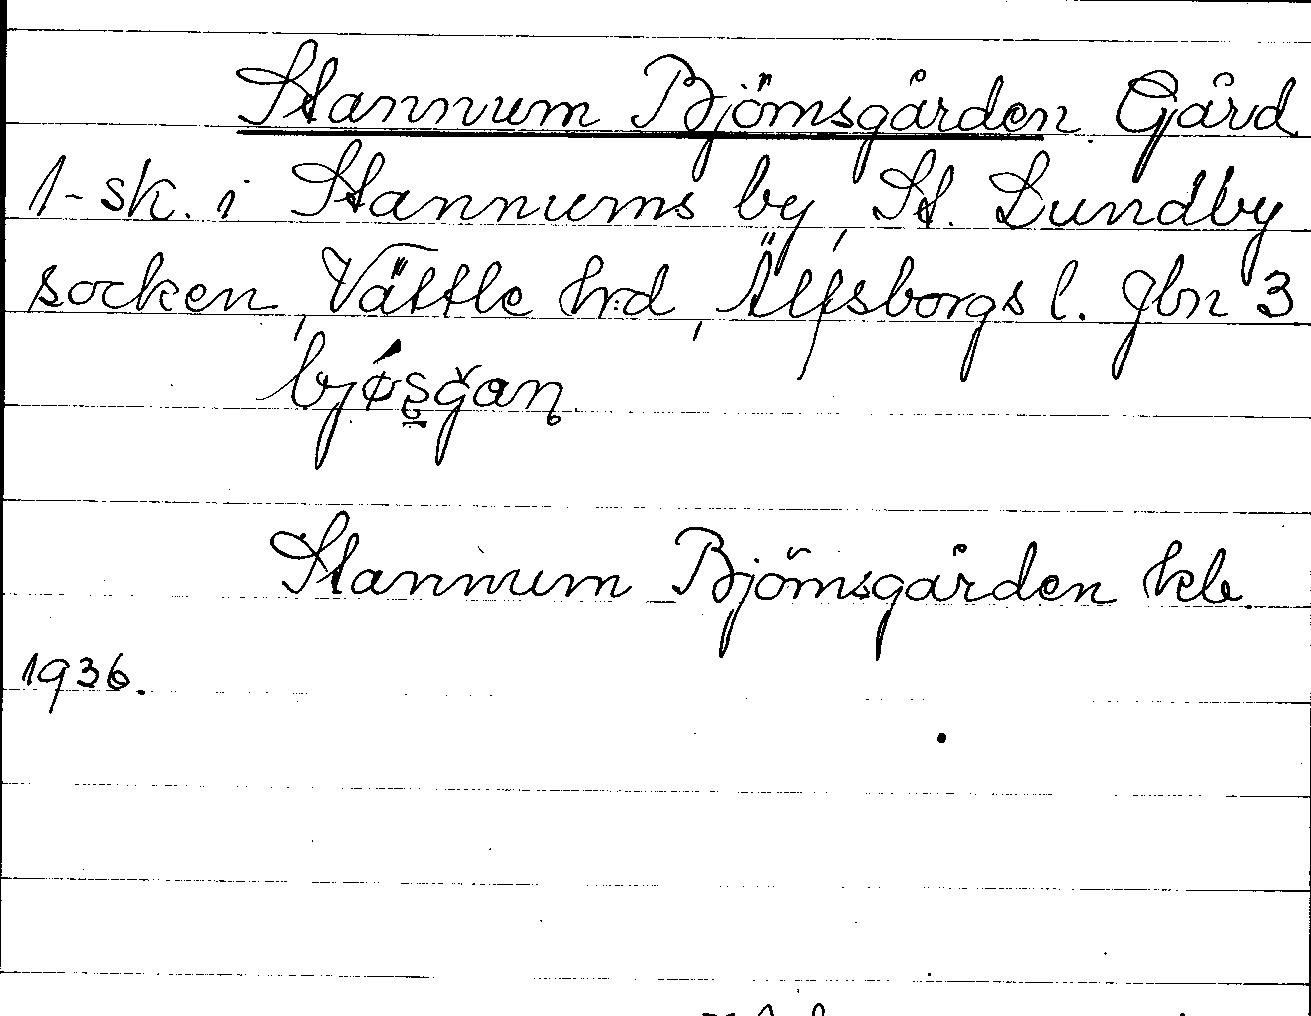 Stannum Björnsgården. Gård
1-sk. i Stannums by, St. Lundby
socken, Vättle hrd, Älfsborgs l. Jbn 3
Stannum Björnsgården kb.
1936.